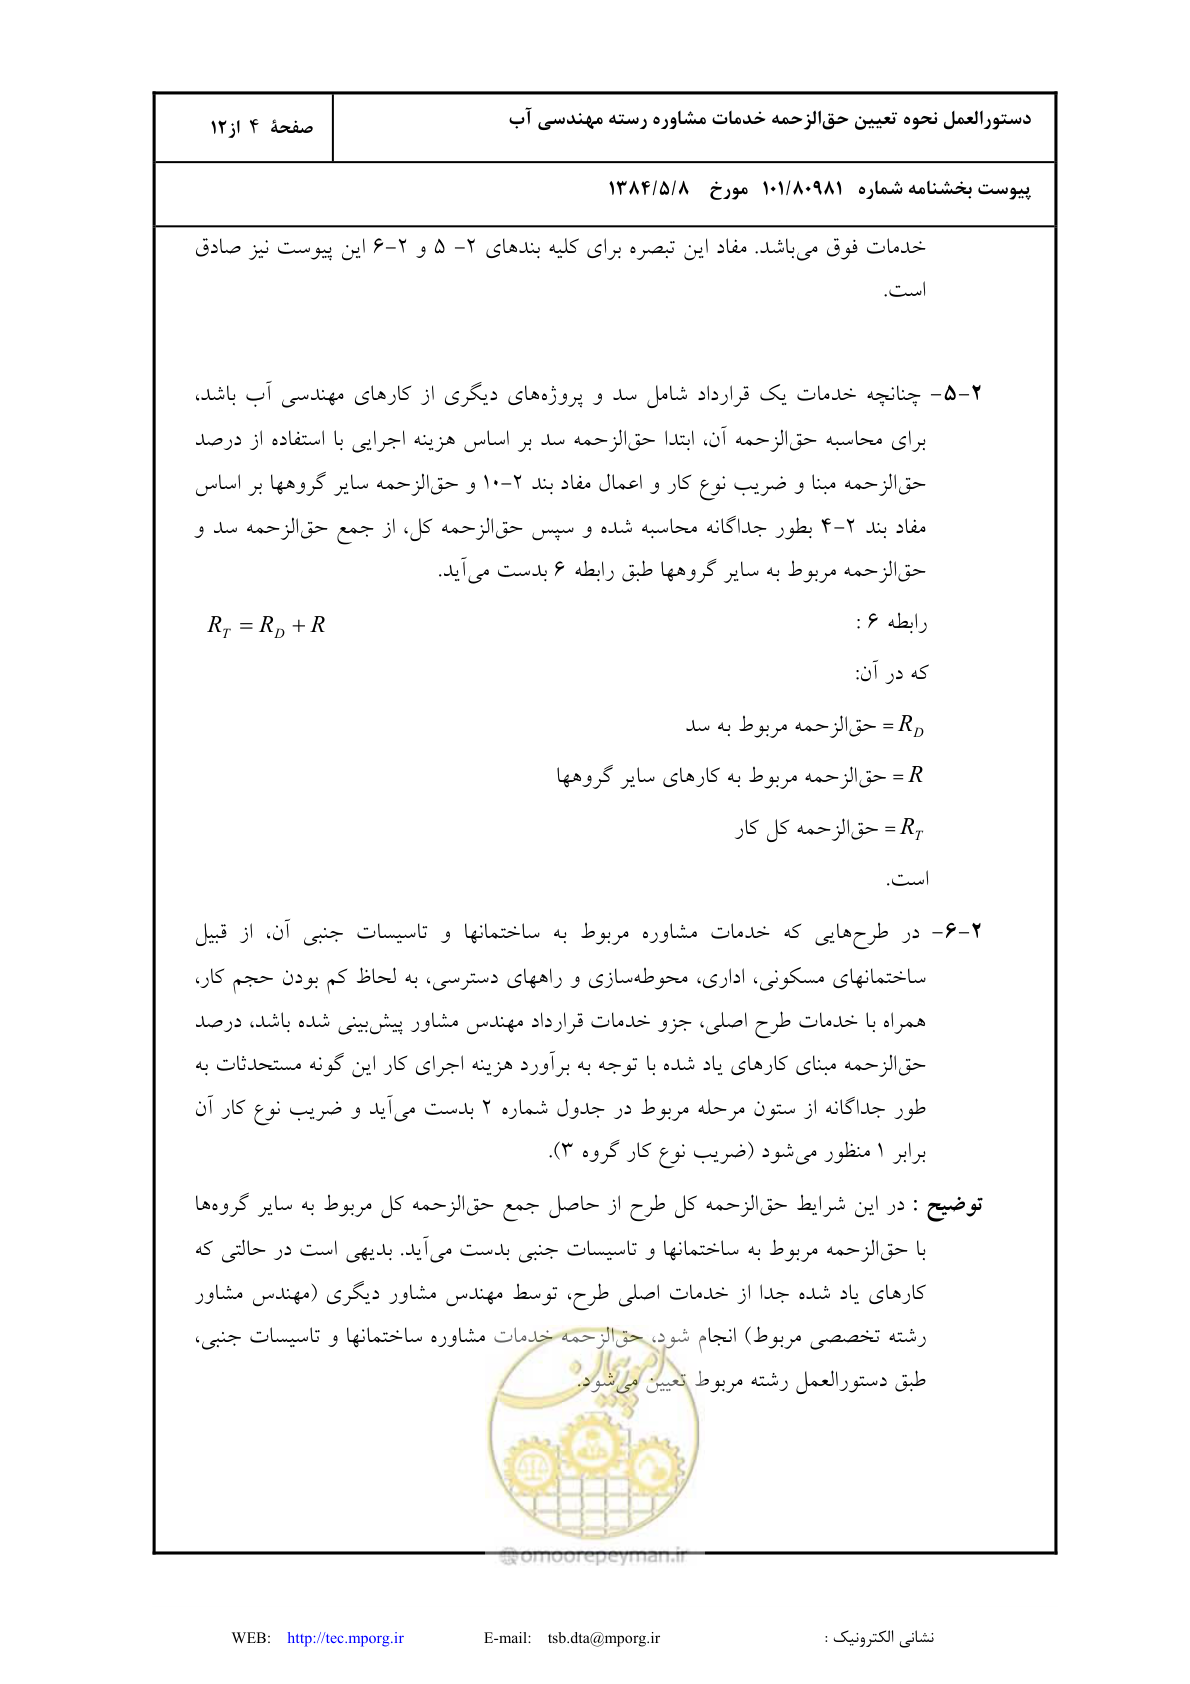 دستورالعمل نحوه تعیین حق‌الزحمه خدمات مشاوره رسته مهندسی آب
صفحهٔ ۴ از۱۲
پیوست بخشنامه شماره ۱۰۱/۸۰۹۸۱ مورخ ۱۳۸۴/۵/۸
خدمات فوق می‌باشد. مفاد این تبصره برای کلیه بندهای ۲- ۵ و ۲-۶ این پیوست نیز صادق
است.
۲-۵- چنانچه خدمات یک قرارداد شامل سد و پروژه‌های دیگری از کارهای مهندسی آب باشد،
برای محاسبه حق‌الزحمه آن، ابتدا حق‌الزحمه سد بر اساس هزینه اجرایی با استفاده از درصد
حق‌الزحمه مبنا و ضریب نوع کار و اعمال مفاد بند ۲-۱۰ و حق‌الزحمه سایر گروهها بر اساس
مفاد بند ۲-۴ بطور جداگانه محاسبه شده و سپس حق‌الزحمه کل، از جمع حق‌الزحمه سد و
حق‌الزحمه مربوط به سایر گروهها طبق رابطه ۶ بدست می‌آید.
رابطه ۶ : R_T = R_D + R
که در آن:
R_D = حق‌الزحمه مربوط به سد
R = حق‌الزحمه مربوط به کارهای سایر گروهها
R_T = حق‌الزحمه کل کار
است.
۲-۶- در طرح‌هایی که خدمات مشاوره مربوط به ساختمانها و تاسیسات جنبی آن، از قبیل
ساختمانهای مسکونی، اداری، محوطه‌سازی و راههای دسترسی، به لحاظ کم بودن حجم کار،
همراه با خدمات طرح اصلی، جزو خدمات قرارداد مهندس مشاور پیش‌بینی شده باشد، درصد
حق‌الزحمه مبنای کارهای یاد شده با توجه به برآورد هزینه اجرای کار این گونه مستحدثات به
طور جداگانه از ستون مرحله مربوط در جدول شماره ۲ بدست می‌آید و ضریب نوع کار آن
برابر ۱ منظور می‌شود (ضریب نوع کار گروه ۳).
توضیح : در این شرایط حق‌الزحمه کل طرح از حاصل جمع حق‌الزحمه کل مربوط به سایر گروه‌ها
با حق‌الزحمه مربوط به ساختمانها و تاسیسات جنبی بدست می‌آید. بدیهی است در حالتی که
کارهای یاد شده جدا از خدمات اصلی طرح، توسط مهندس مشاور دیگری (مهندس مشاور
رشته تخصصی مربوط) انجام شود، حق‌الزحمه خدمات مشاوره ساختمانها و تاسیسات جنبی،
طبق دستورالعمل رشته مربوط تعیین می‌شود.
امور پیمان
@omoorepeyman.ir
نشانی الکترونیک : E-mail: tsb.dta@mporg.ir WEB: http://tec.mporg.ir